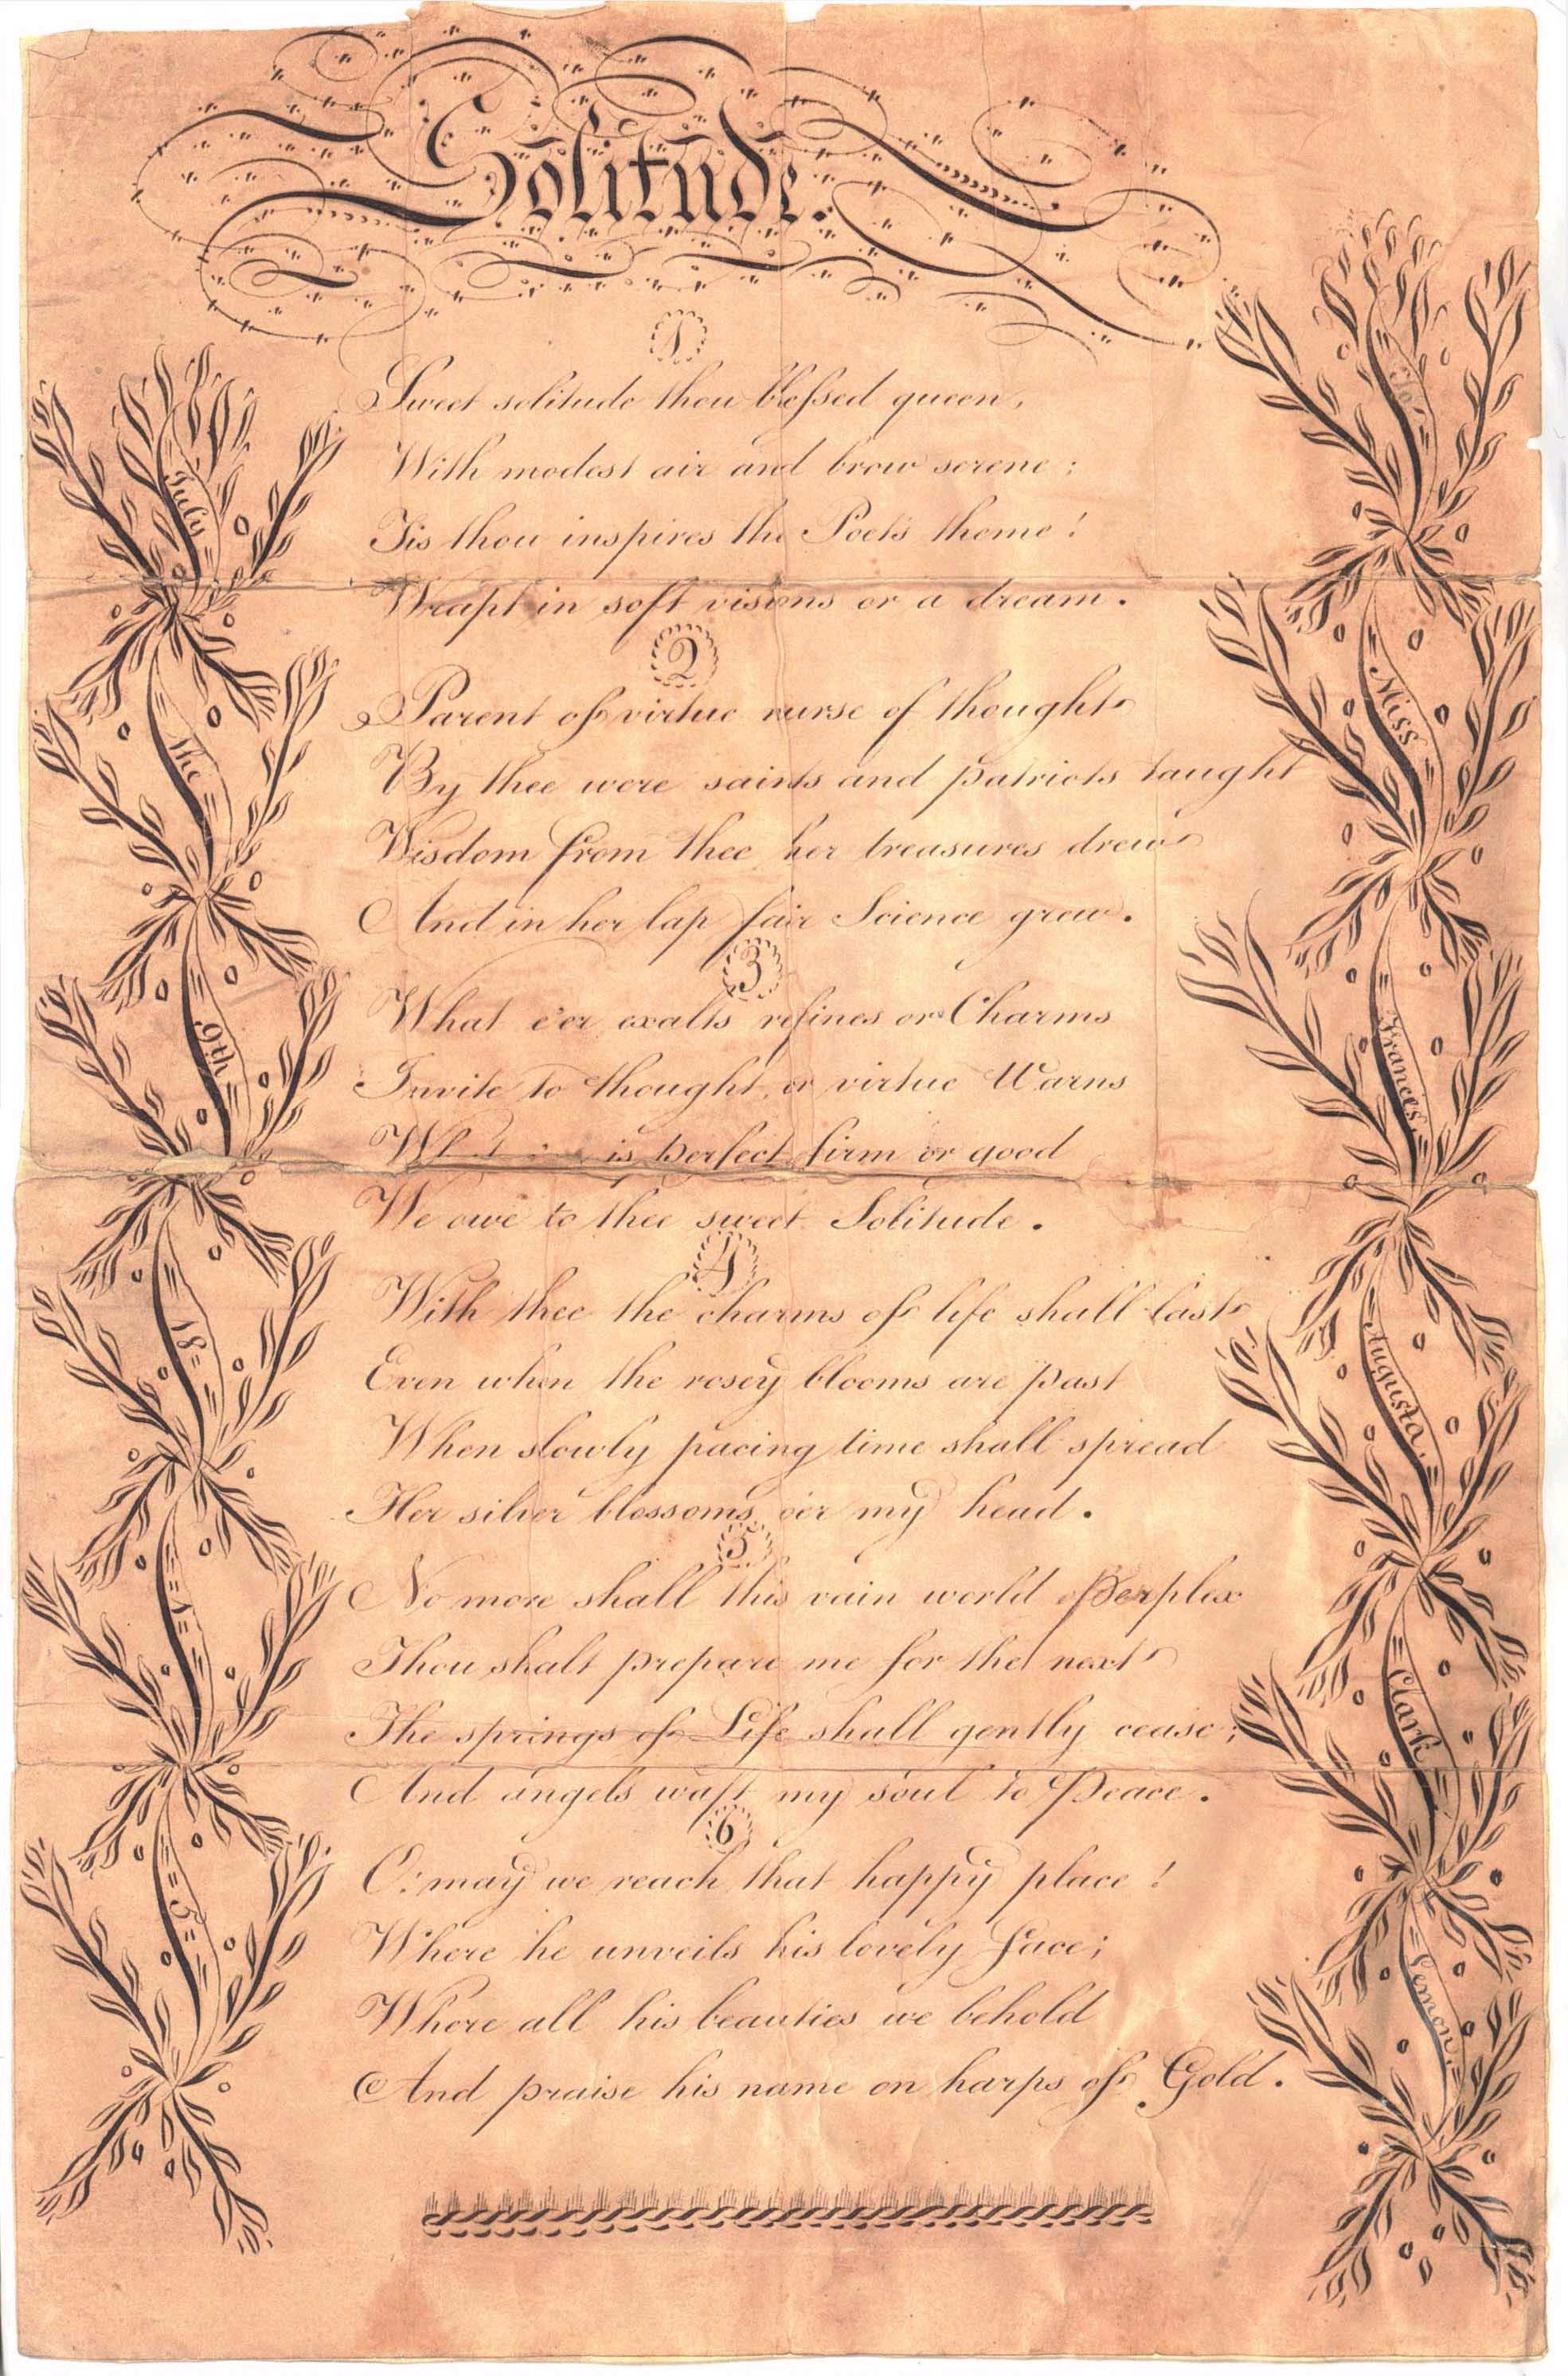 Solitude.
1
Sweet solitude thou blessed queen,
With modest air and brow serene;
Tis thou inspires the Poets theme!
Wrapt in soft visions or a dream.
2
Parent of virtue nurse of thought
By thee were saints and patriots taught
Wisdom from thee her treasures drew
And in her lap fair Science grew.
3
What e'er exalts refines or Charms
Invite to thought or virtue Warns
is perfect firm or good
We owe to thee sweet Solitude.
4
With thee the charms of life shall last
Even when the rosey blooms are past
When slowly pacing time shall spread
Her silver blossoms o'er my head.
5
No more shall this vain world Perplex
Thou shalt prepare me for the next
The springs of Life shall gently cease;
And angels waft my soul to Peace.
6
O: may we reach that happy place!
Where he unveils his lovely face;
Where all his beauties we behold
And praise his name on harps of Gold.
July
the
9th
18=
=1=
=5=
To
Miss
Frances
Augusta
Clark
=Lemon.